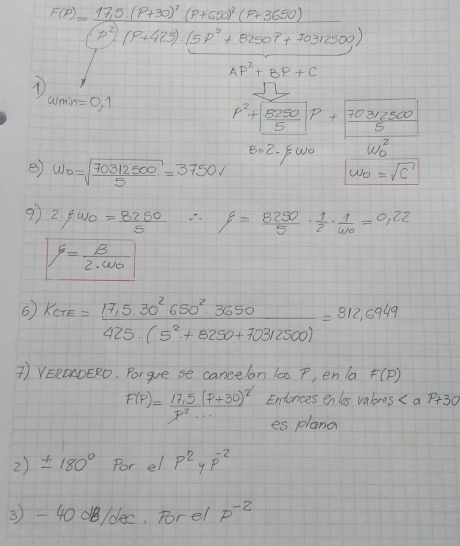 F(P) = 17,5.(P+30)² (P+650)² (P+3650)
P² . (P+425) . (5P² + 8250P + 70312500)
AP² + BP + C
1) ωmin = 0,1
P² + 8250/5 P + 70312500/5
B = 2.ξω0 ω0²
8) ω0 = √70312500/5 = 3750√ ω0 = √C
9) 2.ξω0 = 8250/5 ∴ ξ = 8250/5 . 1/2 . 1/ω0 = 0,22
ξ = B/2.ω0
6) KCTE = 17,5.30² 650² . 3650 / 425.(5² + 8250 + 70312500) = 812,6949
7) VERDADERO. Porque se cancelan las P, en la F(P)
F(P) = 17,5 (P+30)² / P² ... Entonces en los valores < a P+30
es plana
2) ± 180° Por el P² y P⁻²
3) - 40 dB/dec. Por el P⁻²